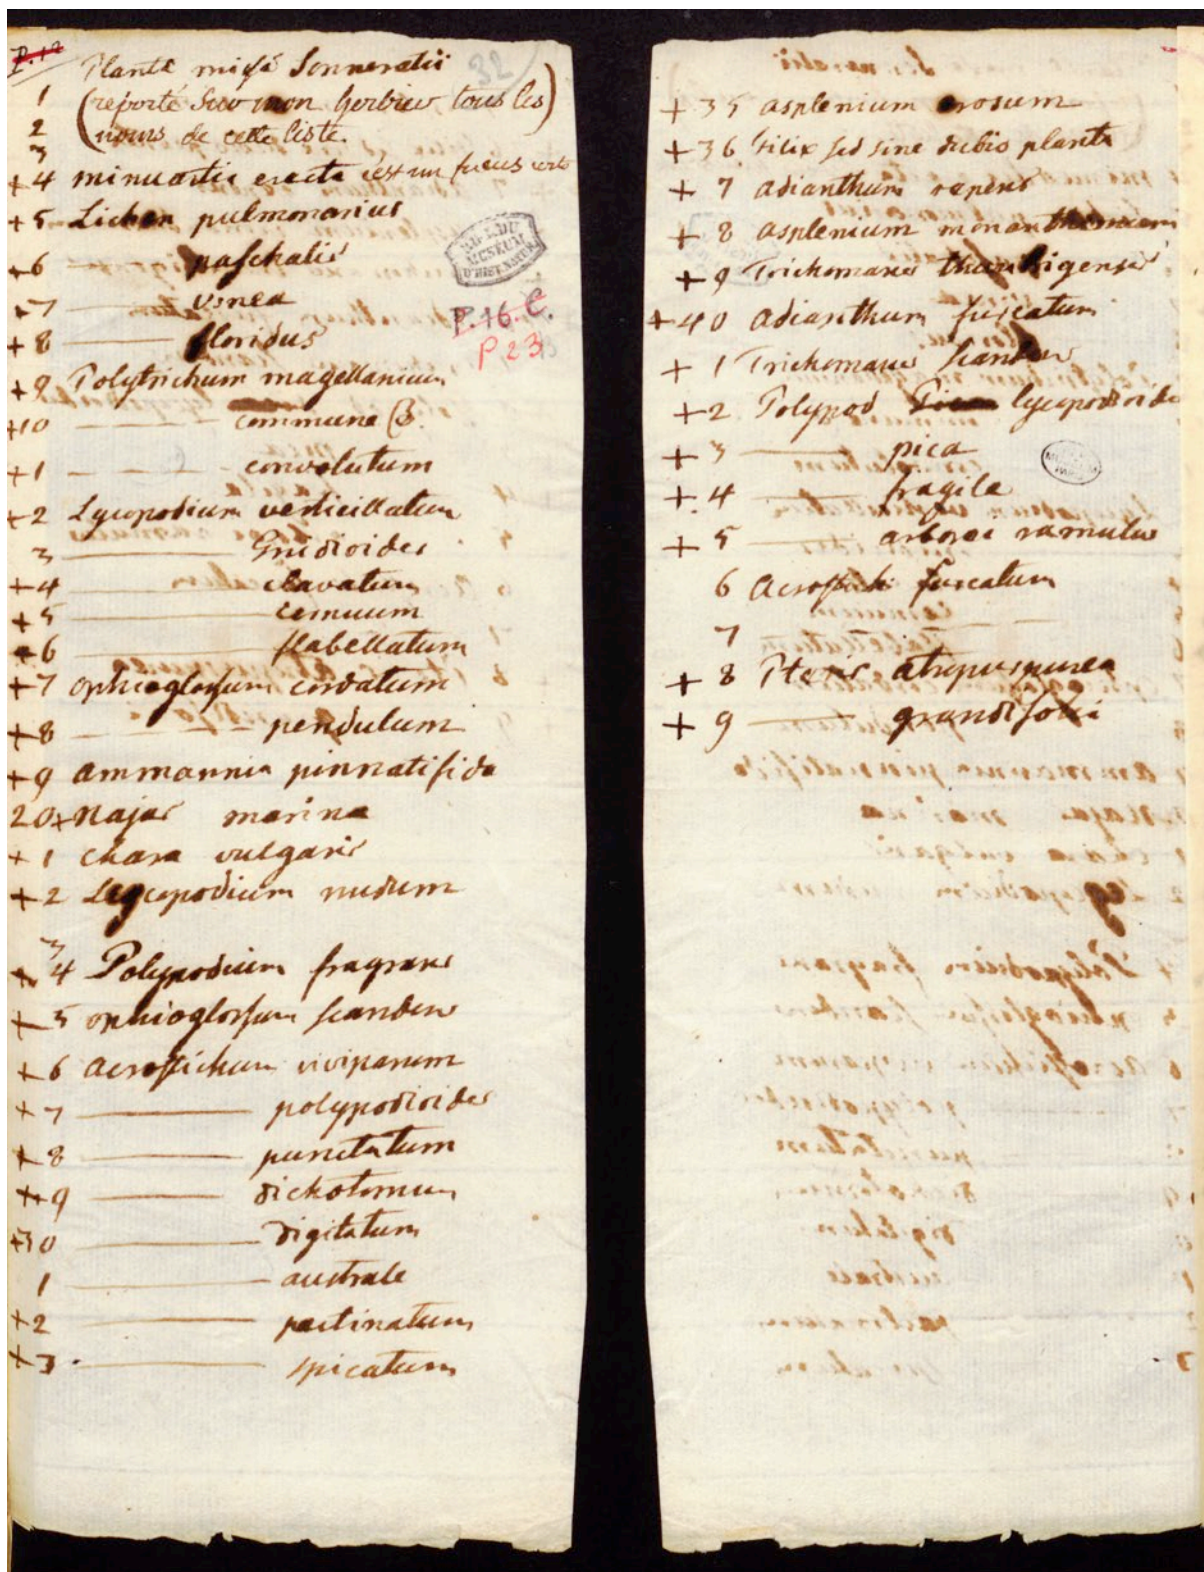 P. 12
Planta missa Sonneratii 32
1 (reporté sur mon herbier tous les)
2 (noms de cette liste.
3
+4 minuartia erecta c'est un fucus
+5 Lichen pulmonarius
+6 —— paschalis
+7 —— usnea
+8 —— floridus
+9 Polytrichum magellanicum
+10 —— commune B.
+1 —— convolutum
+2 Lycopodium verticillatum
3 —— Gnidioides
+4 —— clavatum
+5 —— cernuum
+6 —— flabellatum
+7 ophioglossum cordatum
+8 —— pendulum
+9 ammannia pinnatifida
20+ Najas marina
+1 chara vulgaris
+2 Lycopodium nudum
3
+4 Polypodium fragrans
+5 ophioglossum scandens
+6 acrostichum viviparum
+7 —— polypodioides
+8 —— punctatum
+9 —— dichotomum
+30 —— digitatum
1 —— australe
+2 —— pectinatum
+3 —— spicatum
BIBL. DU
MUSEUM
D'HIST. NATUR.
P. 16. C.
P 23
+35 asplenium erosum
+36 filix sed sine dubio planta
+7 adianthum repens
+8 asplenium monanthemum
+9 Trichomanes
+40 adianthum fuscatum
+1 Trichomanes scandens
+2 Polypod lycopodioide
+3 —— pica
+4 —— fragile
+5 —— arborei ramulus
6 acrostich furcatum
7 ——
+8 Pteris atropurpurea
+9 —— grandifolia